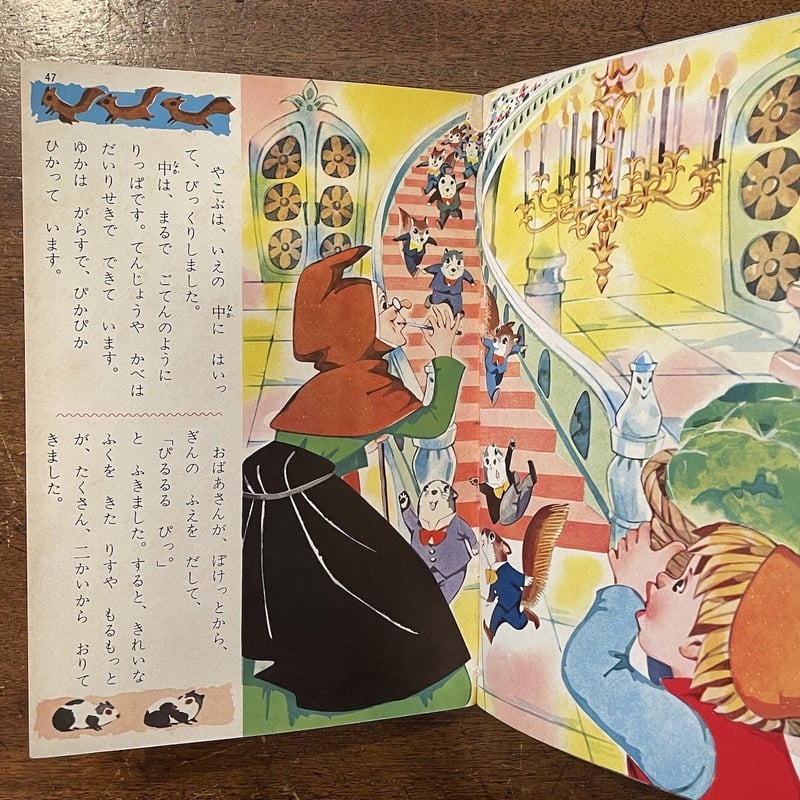 47
やこぶは、いえの 中に はいっ
て、びっくりしました。
中は、まるで ごてんのように
りっぱです。てんじょうや かべは
だいりせきで できて います。
ゆかは がらすで、ぴかぴか
ひかって います。
おばあさんが、ぽけっとから、
ぎんの ふえを だして、
「ぴるるる ぴっ。」
と ふきました。すると、きれいな
ふくを きた りすや もるもっと
が、たくさん、二かいから おりて
きました。